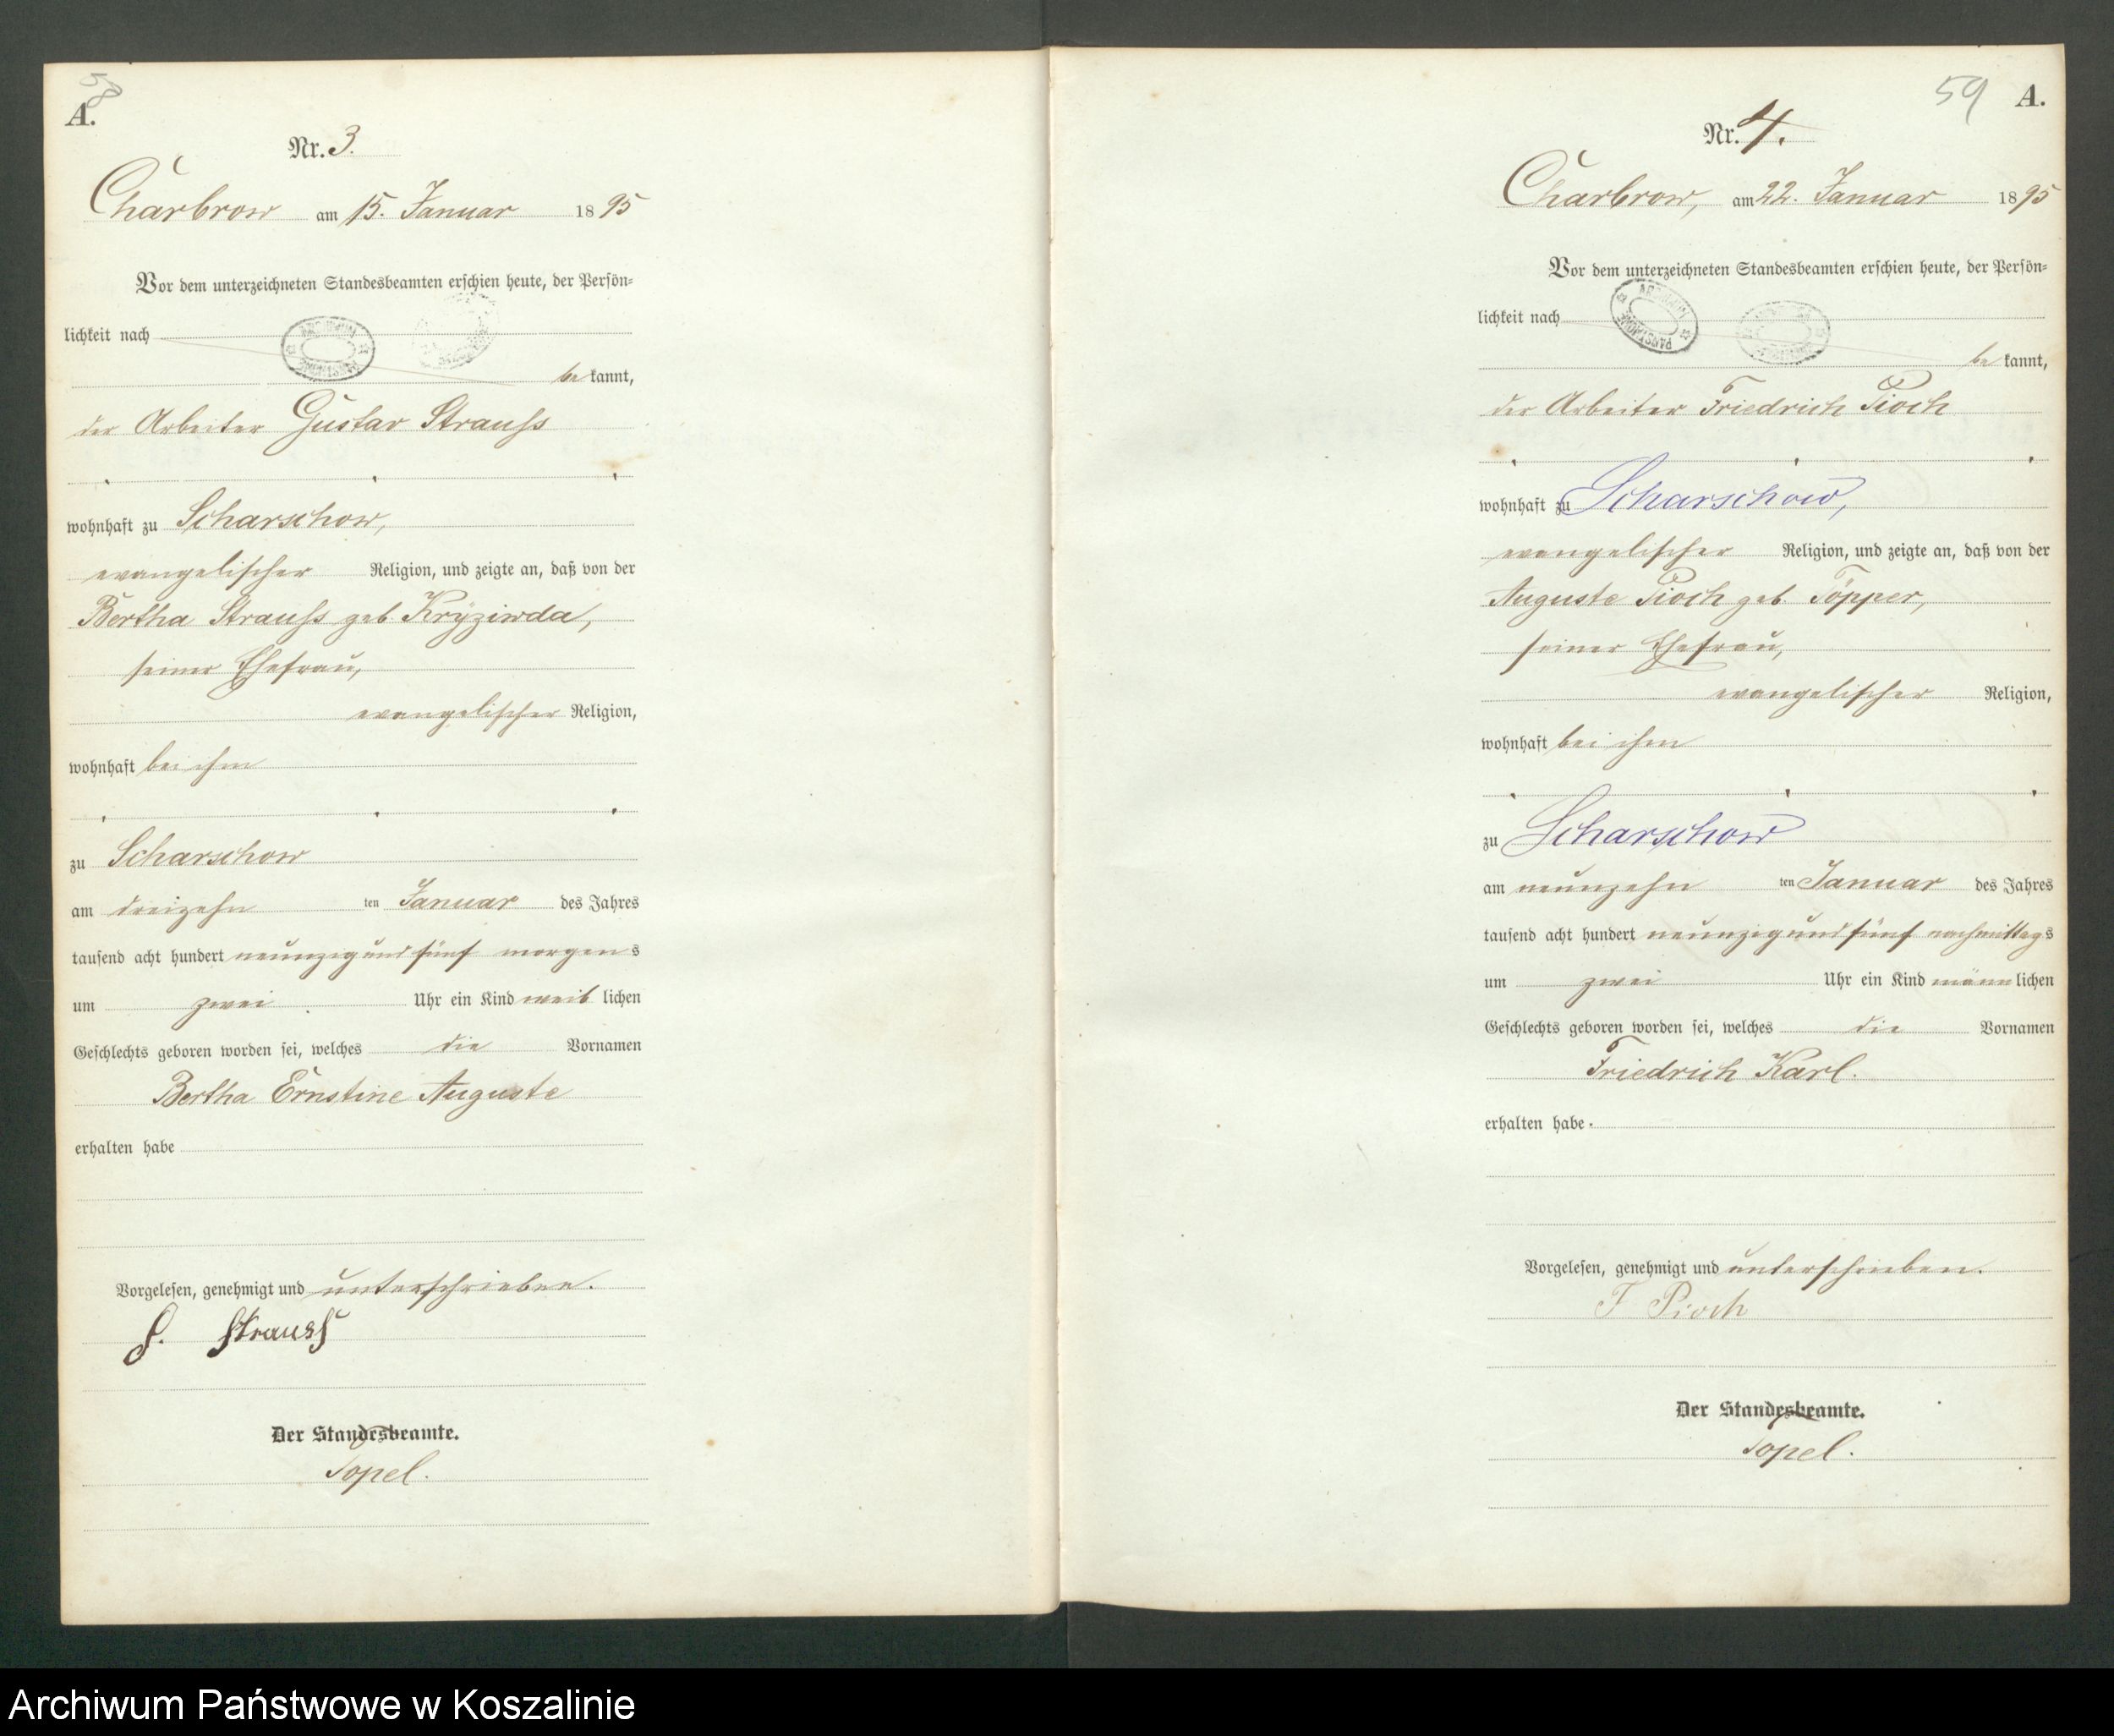 58
A.
Nr. 3.
Charbrow am 15. Januar 1895
Vor dem unterzeichneten Standesbeamten erschien heute, der Persön-
lichkeit nach
be kannt,
der Arbeiter Gustav Strauß
wohnhaft zu Scharschow,
evangelischer Religion, und zeigte an, daß von der
Bertha Strauß geb. Kryziwda,
seiner Ehefrau,
evangelischer Religion,
wohnhaft bei ihm
zu Scharschow
am dreizehn ten Januar des Jahres
tausend acht hundert neunzig und fünf morgens
um zwei Uhr ein Kind weiblichen
Geschlechts geboren worden sei, welches die Vornamen
Bertha Ernstine Auguste
erhalten habe
Vorgelesen, genehmigt und unterschrieben.
G. Strauss
Der Standesbeamte.
Topel.
59 A.
Nr. 4.
Charbrow, am 22. Januar 1895
Vor dem unterzeichneten Standesbeamten erschien heute, der Persön-
lichkeit nach
be kannt,
der Arbeiter Friedrich Pioch
wohnhaft zu Scharschow,
evangelischer Religion, und zeigte an, daß von der
Auguste Pioch geb. Töpper,
seiner Ehefrau,
evangelischer Religion,
wohnhaft bei ihm
zu Scharschow
am neunzehn ten Januar des Jahres
tausend acht hundert neunzig und fünf nachmittags
um zwei Uhr ein Kind männlichen
Geschlechts geboren worden sei, welches die Vornamen
Friedrich Karl.
erhalten habe.
Vorgelesen, genehmigt und unterschrieben.
F Pioch
Der Standesbeamte.
Topel.
Archiwum Państwowe w Koszalinie